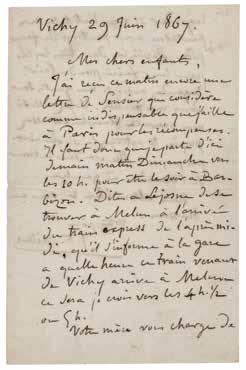 Vichy 29 Juin 1867.
Mes chers enfants,
J'ai reçu ce matin encore une
lettre de Sensier qui considère
comme indispensable que j'aille
à Paris pour les récompenses.
Il faut donc que je parte d'ici
demain matin Dimanche vers
les 10 h. pour être le soir à Bar-
bizon. Dites à Lejosne de se
trouver à Melun à l'arrivée
du train express de l'après mi-
di, qu'il s'informe à la gare
à quelle heure ce train venant
de Vichy arrive à Melun
ce sera je crois vers les 4 h. 1/2
ou 5 h.
Votre mère vous charge de